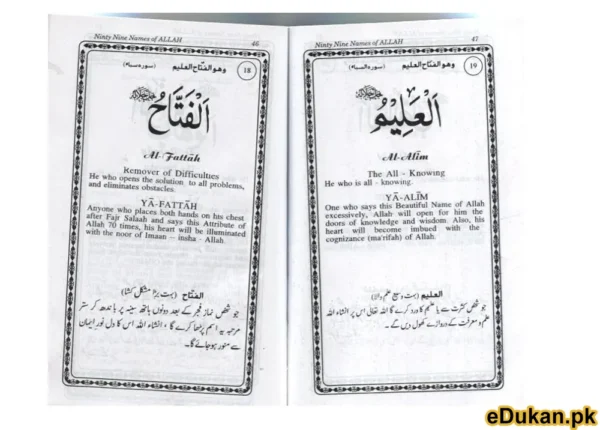 Ninty Nine Names of ALLAH 46
18 وهو الفتاح العليم (سورہ سباء)
اَلْفَتَّاحُ
Al-Fattāh
Remover of Difficulties
He who opens the solution to all problems,
and eliminates obstacles.
YĀ-FATTĀH
Anyone who places both hands on his chest
after Fajr Salaah and says this Attribute of
Allah 70 times, his heart will be illuminated
with the noor of Imaan – insha - Allah.
الفتاح (بہت بڑا مشکل کشا)
جو شخص نماز فجر کے بعد دونوں ہاتھ سینہ پر باندھ کر ستر
مرتبہ یہ اسم پڑھا کرے گا، انشاء اللہ اس کا دل نور ایمان
سے منور ہو جائے گا۔
Ninty Nine Names of ALLAH 47
19 وهو الفتاح العليم
اَلْعَلِيْمُ
Al-Alīm
The All - Knowing
He who is all - knowing.
YĀ-ALĪM
One who says this Beautiful Name of Allah
excessively, Allah will open for him the
doors of knowledge and wisdom. Also, his
heart will become imbued with the
cognizance (ma'rifah) of Allah.
العليم (بہت وسیع علم والا)
جو شخص کثرت سے یا علیم کا ورد کرے گا اللہ تعالی اس پر انشاء اللہ
علم و معرفت کے دروازے کھول دیں گے۔
eDukan.pk